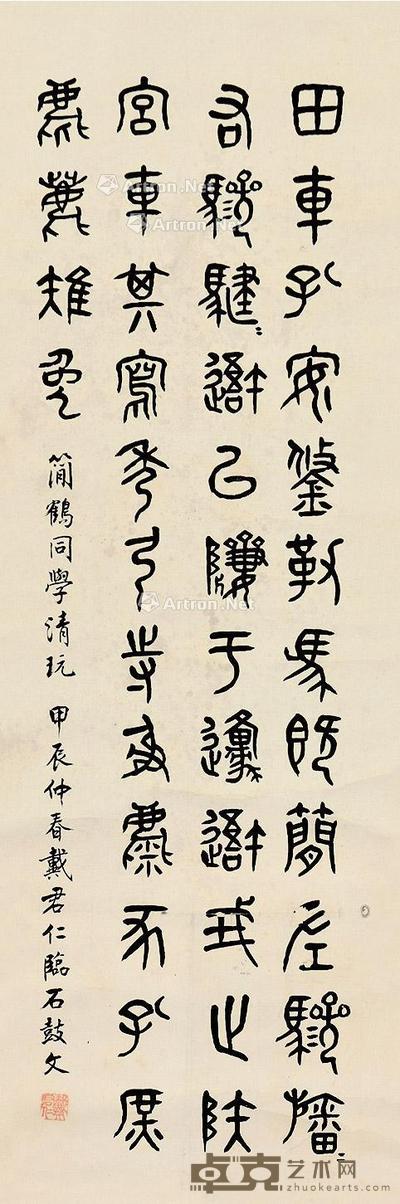 田車孔安鋚勒馬既簡左驂旛〻
右驂騝〻吾以隮于邍吾戎止陜
宮車其寫秀弓寺射麋豕孔庶
麀鹿雉兔
簡鶴同學清玩 甲辰仲春戴君仁臨石鼓文
Artron.Net
Artron.Net
Artron.Net
卓克艺术网
www.zhuokearts.com